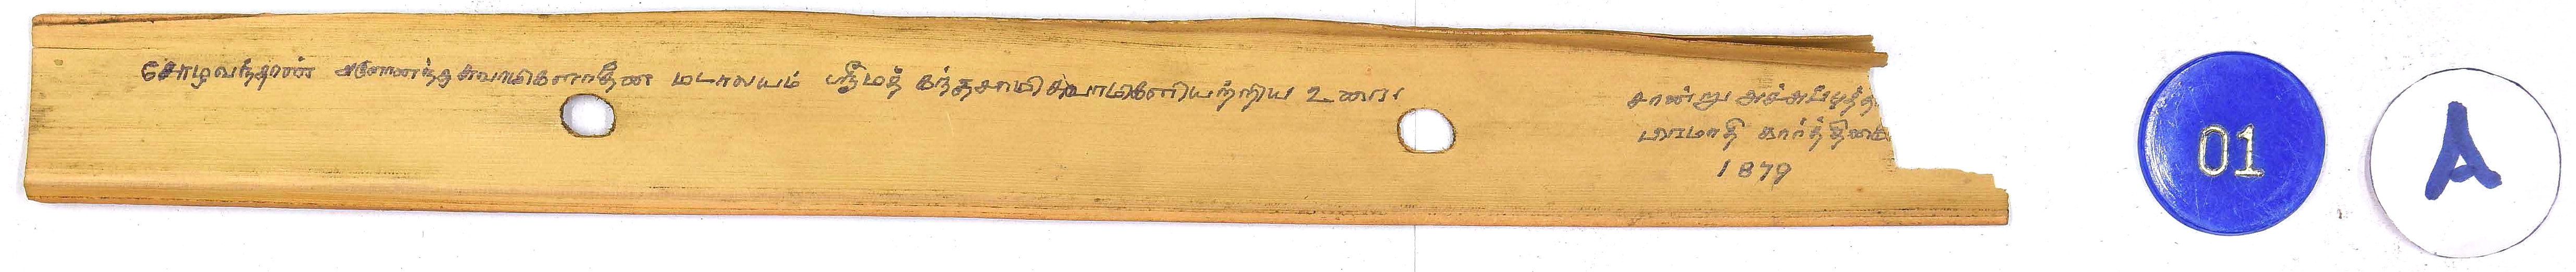 சோழவந்தான் அரசானந்த சுவாமிகளாதீன மடாலயம் ஸ்ரீமத் கந்தசாமி சுவாமிகளியற்றிய உரை
சான்று அச்சுப்பூத்த
பிரமாதி கார்த்திகை
1879
01
A